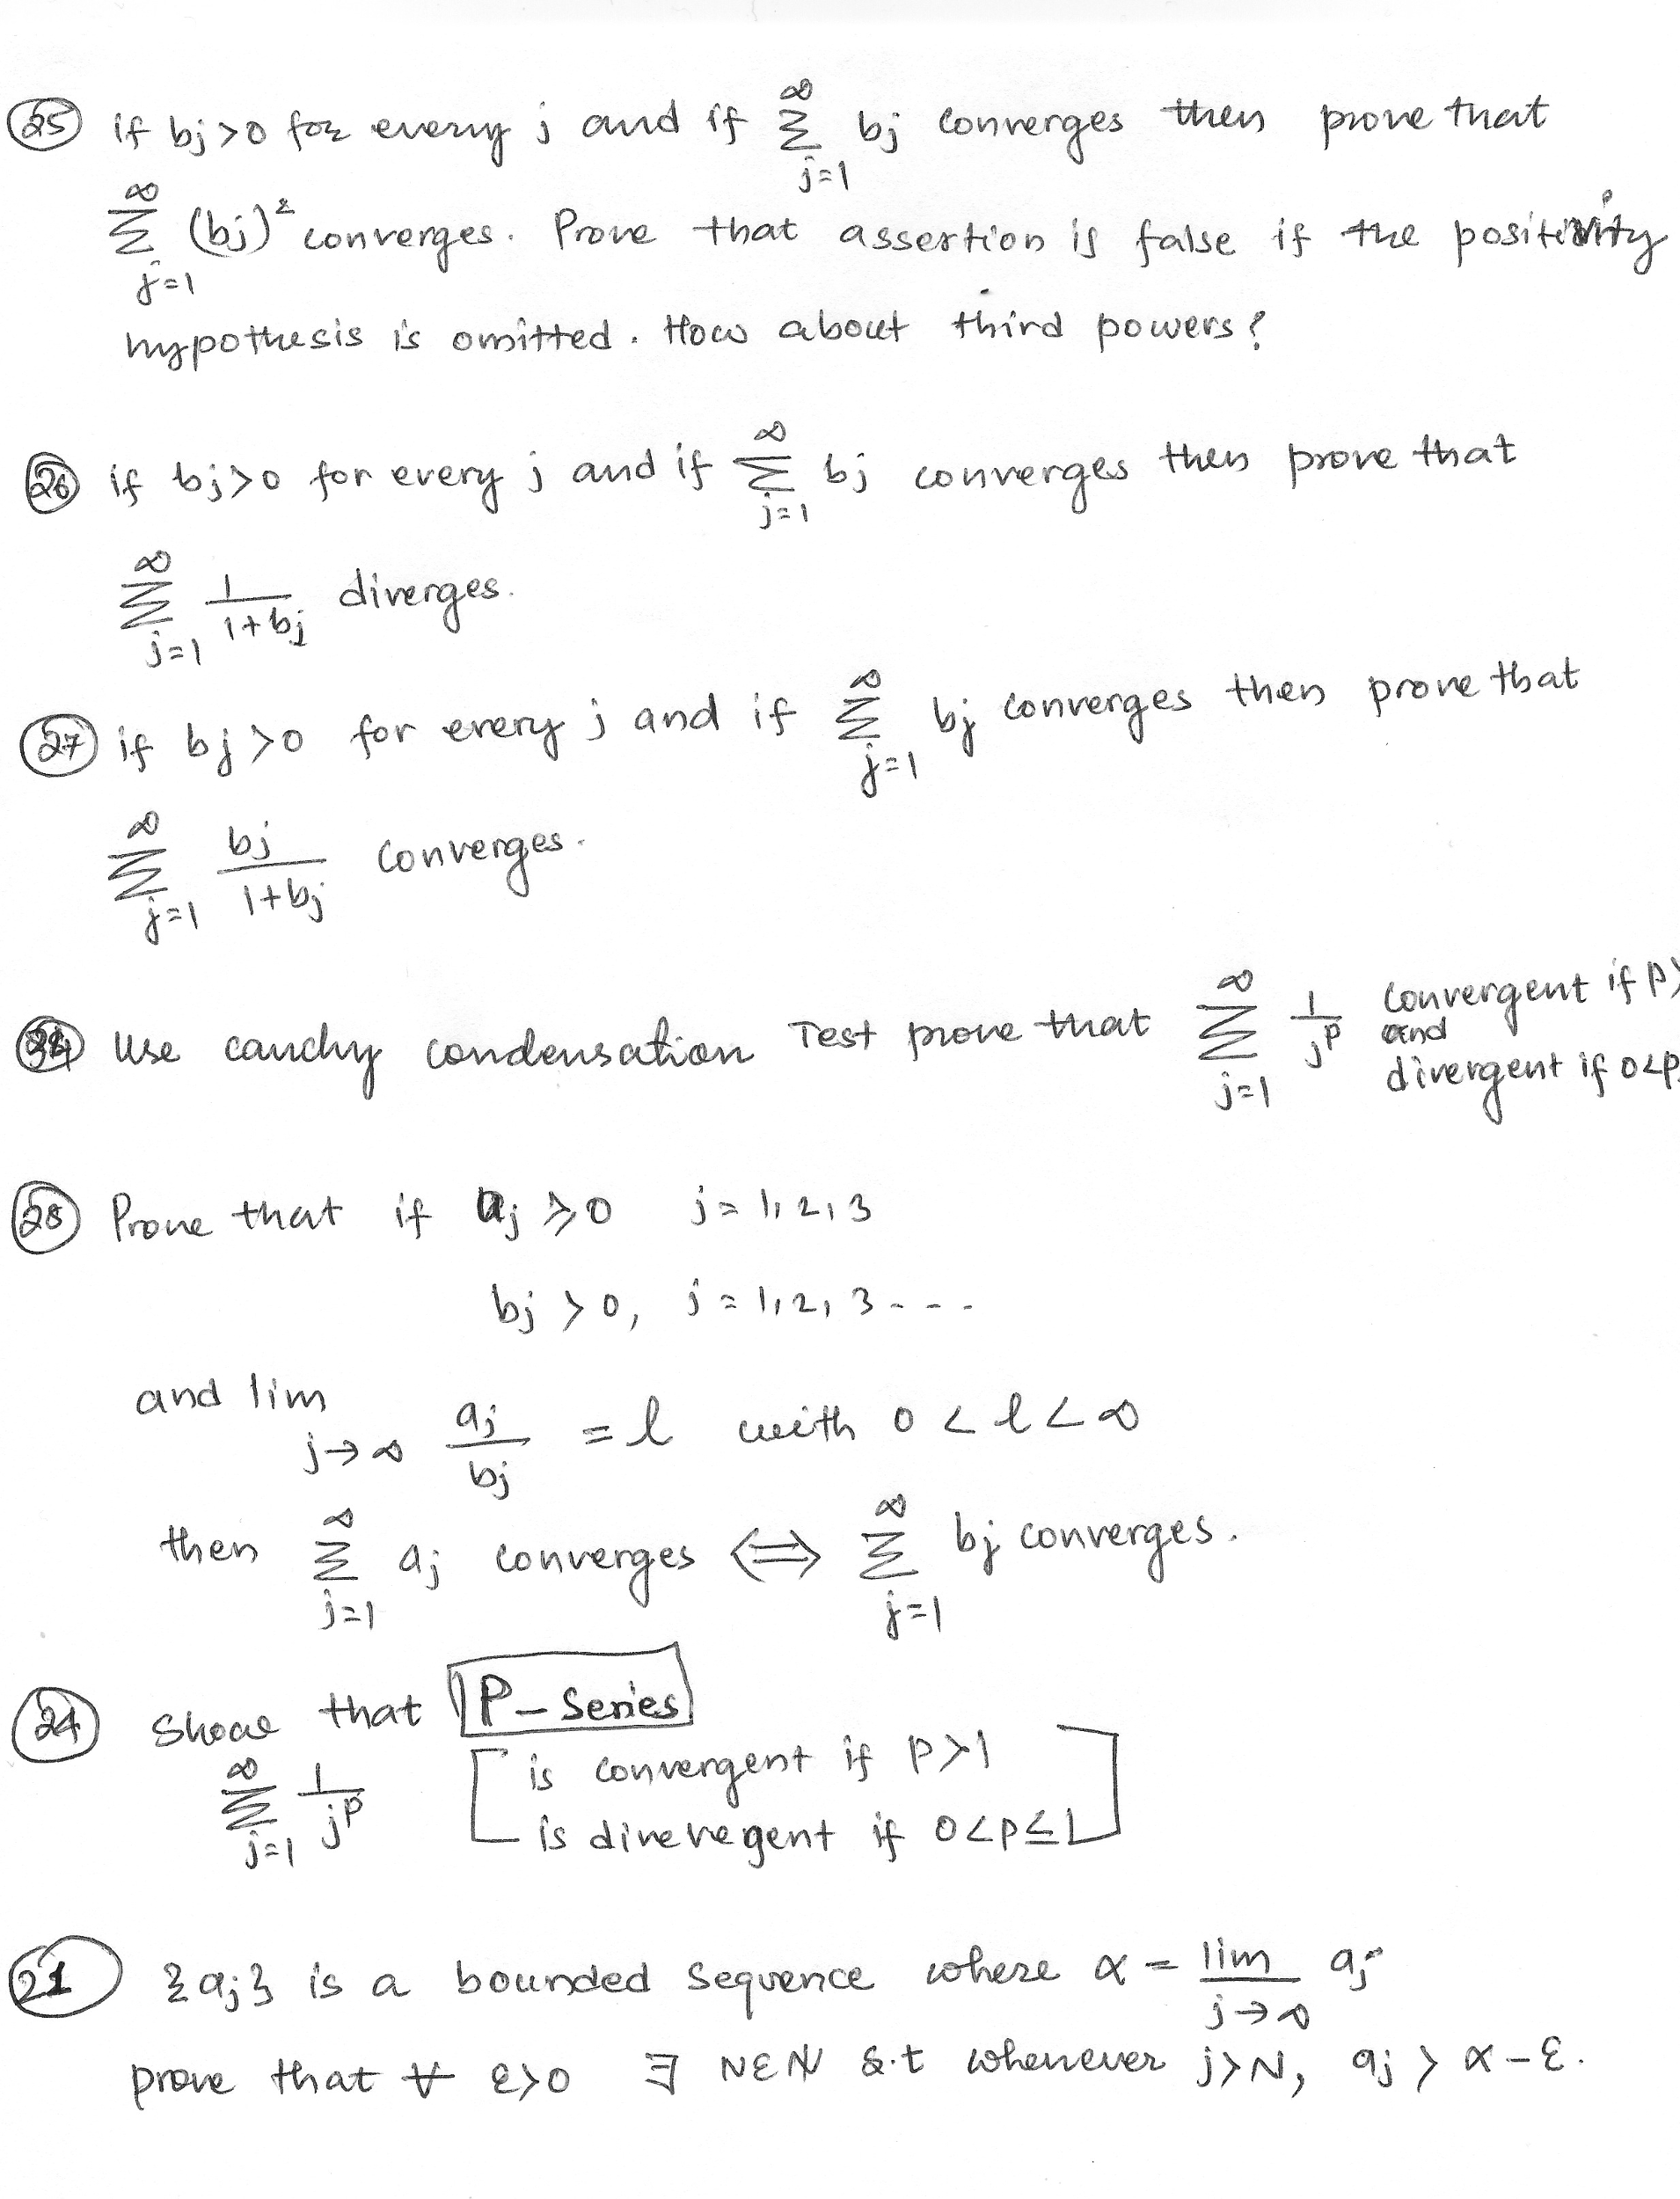 25 if bj>0 for every j and if ∞ Σ j=1 bj converges then prove that
∞ Σ j=1 (bj)² converges. Prove that assertion is false if the positivity
hypothesis is omitted. How about third powers?
26 if bj>0 for every j and if ∞ Σ j=1 bj converges then prove that
∞ Σ j=1 1/(1+bj) diverges.
27 if bj>0 for every j and if ∞ Σ j=1 bj converges then prove that
∞ Σ j=1 bj/(1+bj) converges.
Use cauchy condensation Test prove that ∞ Σ j=1 1/j^p convergent if p>
and
divergent if 0<p
28 Prove that if aj ≥0 j=1,2,3
bj >0, j=1,2,3----
and lim j→∞ aj/bj = l with 0<l<∞
then ∞ Σ j=1 aj converges ⟺ ∞ Σ j=1 bj converges.
24 Show that P-Series
∞ Σ j=1 1/j^p is convergent if P>1
is diveregent if 0<p≤1
21 {aj} is a bounded sequence where α = lim j→∞ aj
prove that ∀ ε>0 ∃ N∈ℕ s.t whenever j>N, aj > α-ε.